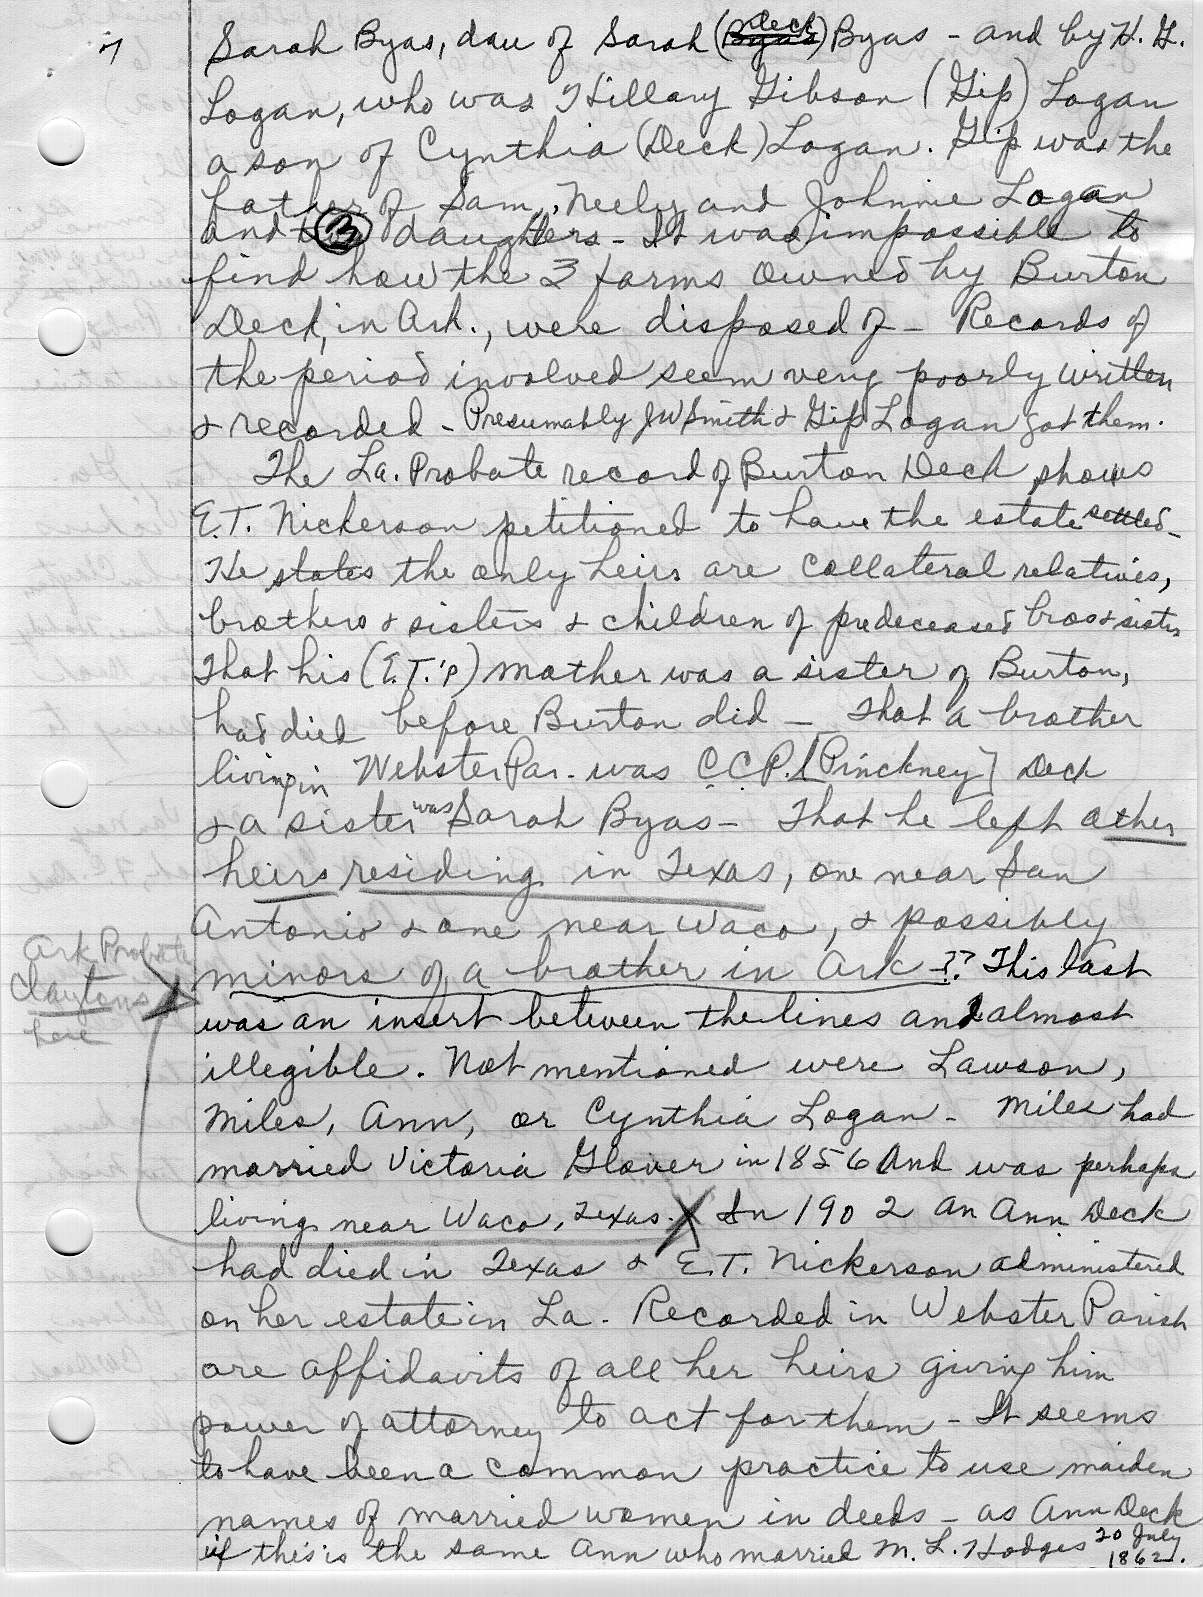 7
Sarah Byas, dau of Sarah (Deck) Byas - and by H. G.
Logan, who was Hillary Gibson (Gip) Logan
a son of Cynthia (Deck) Logan. Gip was the
father of Sam, Neely and Johnnie Logan
and 3 daughters - It was impossible to
find how the 3 farms owned by Burton
Deck, in Ark., were disposed of - Records of
the period involved seem very poorly written
& recorded - Presumably JW Smith & Gip Logan got them.
The La. Probate record of Burton Deck shows
E.T. Nickerson petitioned to have the estate settled -
He states the only heirs are collateral relatives,
brothers & sisters & children of predeceased bros & sisters
That his (E.T.'s) mother was a sister of Burton,
had died before Burton did - That a brother
living in Webster Par. was C.C.P. [Pinckney] Deck
& a sister was Sarah Byas - That he left other
heirs residing in Texas, one near San
Antonio & one near Waco, & possibly
minors of a brother in Ark -?? This last
Ark Probate
Claytons
here
was an insert between the lines and almost
illegible. Not mentioned were Lawson,
Miles, Ann, or Cynthia Logan - Miles had
married Victoria Glover in 1856 And was perhaps
living near Waco, Texas. X In 1902 an Ann Deck
had died in Texas & E.T. Nickerson administered
on her estate in La. Recorded in Webster Parish
are affidavits of all her heirs giving him
power of attorney to act for them - It seems
to have been a common practice to use maiden
names of married women in deeds - as Ann Deck
if this is the same Ann who married M. L. Hodges 20 July
1862.